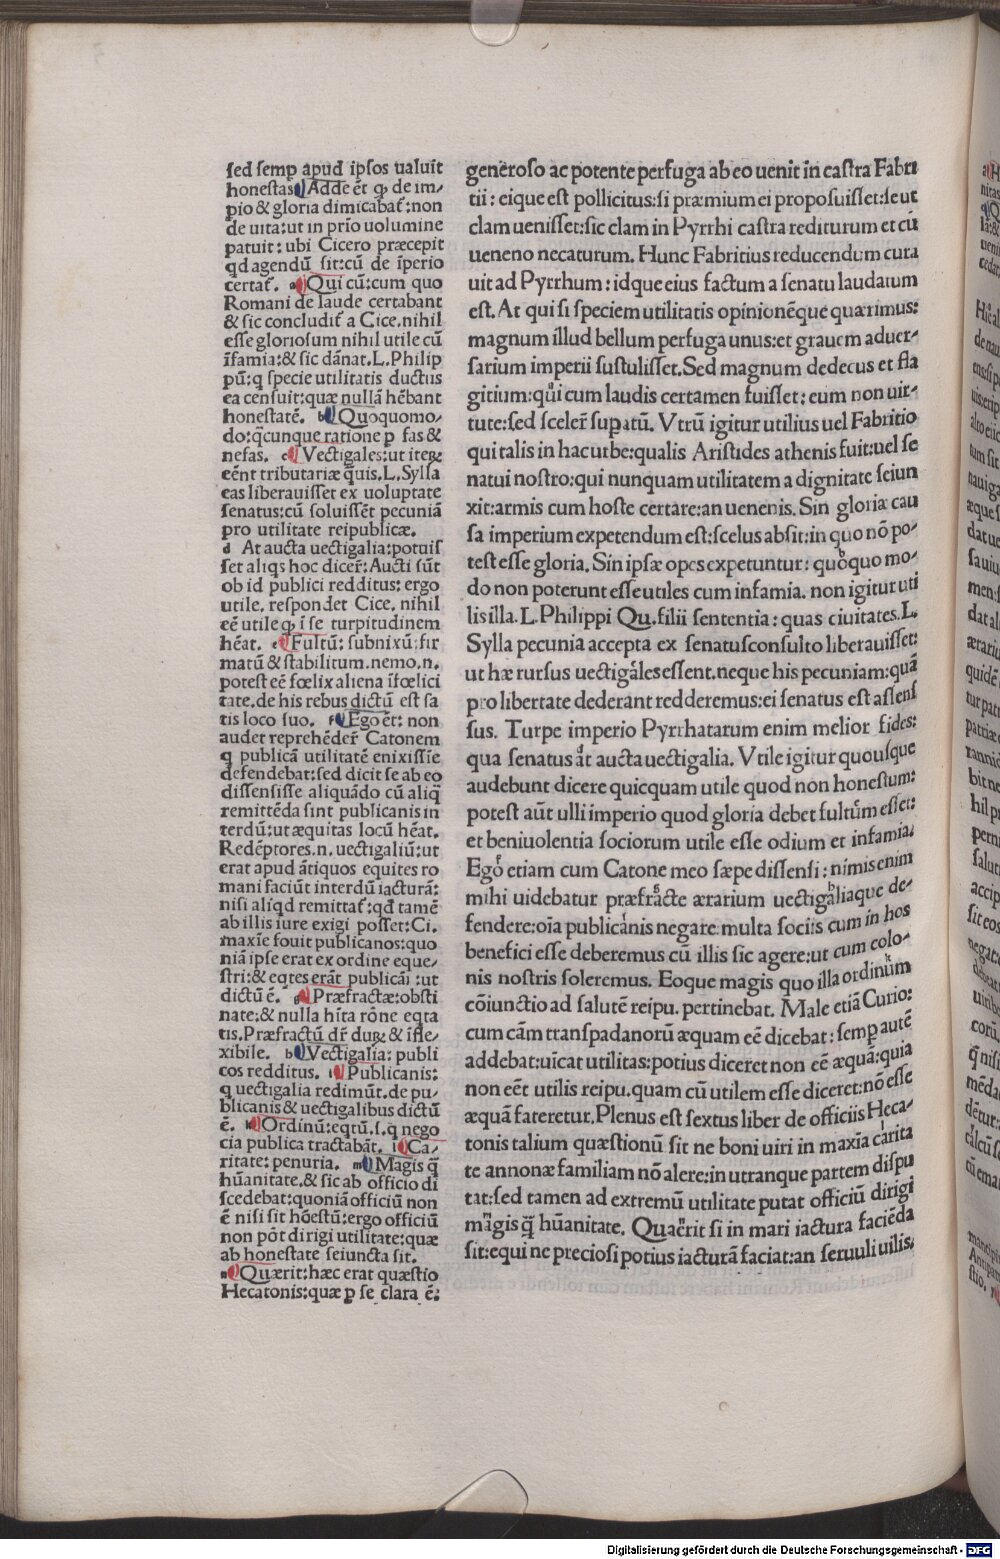 sed semꝑ apud ipsos ualuit
honestas. Adde ēt ꝙ de im/
pio & gloria dimicabat̄: non
de uita: ut in prīo uolumine
patuit: ubi Cicero præcepit
qd agendū sit: cū de īperio
certat̄. a Qui cū: cum quo
Romani de laude certabant
& sic concludit̄ a Cice. nihil
esse gloriosum nihil utile cū
īfamia: & sic dānat. L. Philip
pū: q specie utilitatis ductus
ea censuit: quæ nullā hēbant
honestatē. b Quoquomo/
do: q̄cunque ratione ꝑ fas &
nefas. c Vectigales: ut iteꝝ
eēnt tributariæ q̄uis. L. Sylla
eas liberauisset ex uoluptate
senatus: cū soluissēt pecuniā
pro utilitate reipublicæ.
d At aucta uectigalia: potuis
set aliqs hoc dicer̄: Aucti sūt
ob id publici redditus: ergo
utile. respondet Cice. nihil
eē utile ꝙ ī se turpitudinem
hēat. e Fultū: subnixū: fir
matū & stabilitum. nemo. n.
potest eē fœlix aliena īfœlici
tate. de his rebus dictū est sa
tis loco suo. f Ego ēt: non
audet reprehēder̄ Catonem
q publicā utilitatē enixissīe
defendebat: sed dicit se ab eo
dissensisse aliquādo cū aliq̄
remittēda sint publicanis in
terdū: ut æquitas locū hēat.
Redēptores. n. uectigaliū: ut
erat apud ātiquos equites ro
mani faciūt interdū iacturā:
nisi aliqd remittat̄: qd̄ tamē
ab illis iure exigi posset: Ci.
maxīe fouit publicanos: quo
niā ipse erat ex ordine eque/
stri: & eqtes erāt publicāi: ut
dictū ē. g Præfractæ: obsti
nate: & nulla hīta rōne eqta
tis. Præfractū dr̄ duꝝ & īfle/
xibile. h Vectigalia: publi
cos redditus. i Publicanis:
q uectigalia redimūt. de pu/
blicanis & uectigalibus dictū
ē. k Ordinū: eqtū. s. q nego
cia publica tractabāt. l Ca/
ritate: penuria. m Magis q̄
hūanitate. & sic ab officio di
scedebat: quoniā officiū non
ē nisi sit hōestū: ergo officiū
non pōt dirigi utilitate: quæ
ab honestate seiuncta sit.
n Quærit: hæc erat quæstio
Hecatonis: quæ ꝑ se clara ē:
generoso ac potente perfuga ab eo uenit in castra Fabri
tii: eique est pollicitus: si præmium ei proposuisset: se ut
clam uenisset: sic clam in Pyrrhi castra rediturum et cū
ueneno necaturum. Hunc Fabritius reducendum cura
uit ad Pyrrhum: idque eius factum a senatu laudatum
est. At qui si speciem utilitatis opinionēque quærimus:
magnum illud bellum perfuga unus: et grauem aduer-
sarium imperii sustulisset. Sed magnum dedecus et fla
gitium: qui cum laudis certamen fuisset: eum non uir-
tute: sed sceler̄ supatū. Vtrū igitur utilius uel Fabritio
qui talis in hac urbe: qualis Aristides athenis fuit: uel se
natui nostro: qui nunquam utilitatem a dignitate seiun
xit: armis cum hoste certare: an uenenis. Sin gloriæ cau
sa imperium expetendum est: scelus absit: in quo nō po-
test esse gloria. Sin ipsæ opes expetuntur: quoquo mo-
do non poterunt esse utiles cum infamia. non igitur uti
lis illa. L. Philippi Qu. filii sententia: quas ciuitates. L.
Sylla pecunia accepta ex senatusconsulto liberauisset:
ut hæ rursus uectigales essent. neque his pecuniam: quā
pro libertate dederant redderemus: ei senatus est assens
sus. Turpe imperio Pyrrhatarum enim melior fides:
qua senatus at aucta uectigalia. Vtile igitur quousque
audebunt dicere quicquam utile quod non honestum:
potest aūt ulli imperio quod gloria debet fultum esset:
et beniuolentia sociorum utile esse odium et infamia.
Ego etiam cum Catone meo sæpe dissensi: nimis enim
mihi uidebatur præfracte ærarium uectigaliaque de-
fendere: oīa publicanis negare. multa sociis cum in hos
benefici esse deberemus cū illis sic agere: ut cum colo-
nis nostris soleremus. Eoque magis quo illa ordinum
cōiunctio ad salutē reipu. pertinebat. Male etiā Curio:
cum cām transpadanorū æquam eē dicebat: semp autē
addebat: uicat utilitas: potius diceret non eē æquā: quia
non eēt utilis reipu. quam cū utilem esse diceret: nō esse
æquā fateretur. Plenus est sextus liber de officiis Heca-
tonis talium quæstionū sit ne boni uiri in maxīa carita
te annonæ familiam nō alere: in utranque partem dispu
tat: sed tamen ad extremū utilitate putat officiū dirigi
magis q̄ hūanitate. Quaerit si in mari iactura faciēda
sit: equi ne preciosi potius iacturā faciat: an seruuli uilis.
Digitalisierung gefördert durch die Deutsche Forschungsgemeinschaft - DFG